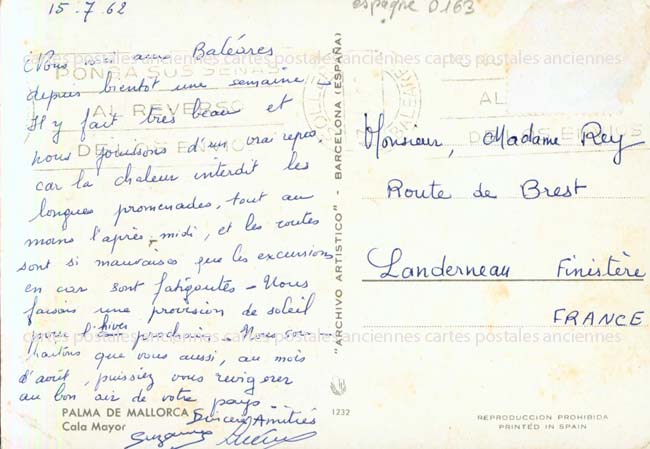 15.7.62
espagne 0163
Nous voici aux Baléares
depuis bientôt une semaine -
Il y fait très beau et
nous jouissons d'un vrai repos,
car la chaleur interdit les
longues promenades, tout au
moins l'après-midi, et les routes
sont si mauvaises que les excursions
en car sont fatigantes - Nous
faisons une provision de soleil
pour l'hiver prochain - Nous sou-
haitons que vous aussi, au mois
d'août, puissiez vous revigorer
au bon air de votre pays
Sincères Amitiés
Suzanne
PALMA DE MALLORCA
Cala Mayor
1232
"ARCHIVO ARTISTICO" - BARCELONA (ESPAÑA)
PONGA SUS SEÑAS
AL REVERSO
DE LOS ENVIOS
BALEARES
AL
Monsieur, Madame Rey
Route de Brest
Landerneau Finistère
FRANCE
REPRODUCCION PROHIBIDA
PRINTED IN SPAIN
cartes postales anciennes cartes postales anciennes cartes postales anciennes
cartes postales anciennes cartes postales anciennes cartes postales anciennes